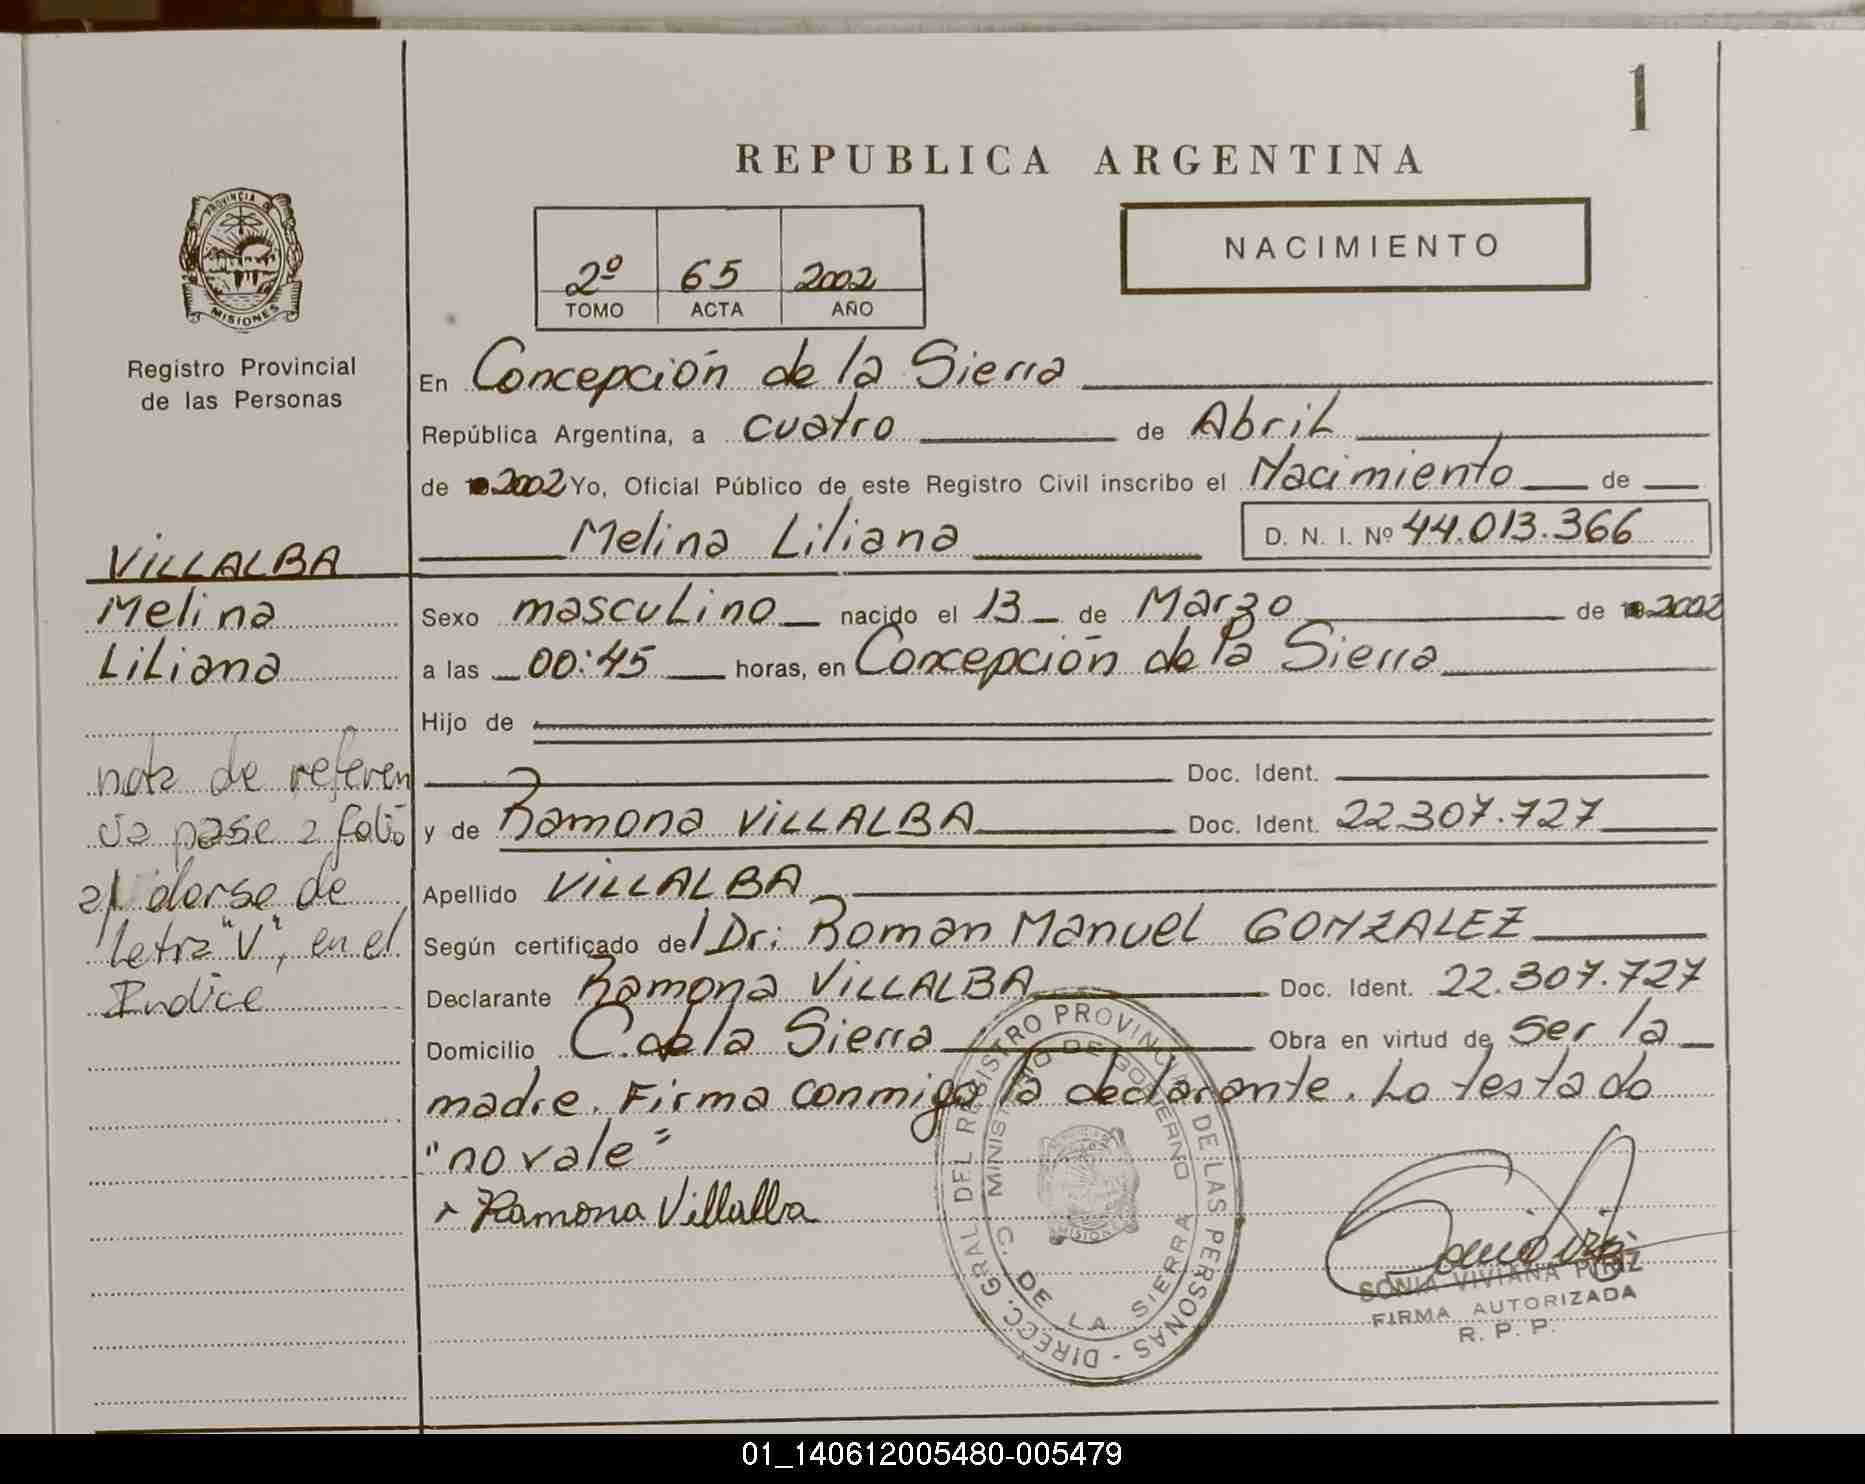 1
REPUBLICA ARGENTINA
PROVINCIA DE
MISIONES
Registro Provincial
de las Personas
2º 65 2002
TOMO ACTA AÑO
NACIMIENTO
En Concepción de la Sierra
República Argentina, a cuatro de Abril
de 2002 Yo, Oficial Público de este Registro Civil inscribo el Nacimiento de
Melina Liliana D. N. I. Nº 44.013.366
VILLALBA
Melina
Liliana
Sexo masculino nacido el 13 de Marzo de 2002
a las 00:45 horas, en Concepción de la Sierra
Hijo de
Doc. Ident.
y de Ramona VILLALBA Doc. Ident. 22.307.727
nota de referen
cia pase a folio
al dorse de
letra "V", en el
Indice
Apellido VILLALBA
Según certificado del Dr: Roman Manuel GONZALEZ
Declarante Ramona VILLALBA Doc. Ident. 22.307.727
Domicilio C. de la Sierra Obra en virtud de ser la
madre. Firma conmigo la declarante. Lo testado
"no vale"
Ramona Villalba
DIRECC. GRAL DEL REGISTRO PROVINCIAL DE LAS PERSONAS -
MINISTERIO DE GOBIERNO
C. DE LA SIERRA
MISIONES
SONIA VIVIANA PIRIZ
FIRMA AUTORIZADA
R. P. P.
01_140612005480-005479